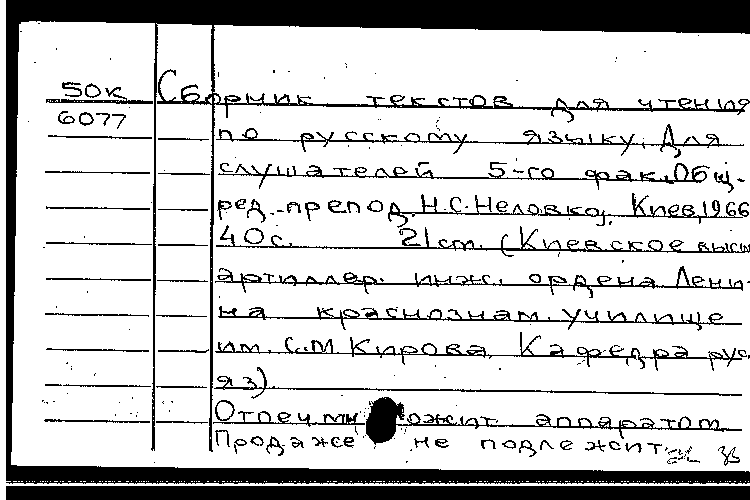 50к Сборник текстов для чтения
6077
по русскому языку. Для
слушателей 5-го фак. Общ.
ред. препод. Н.С. Неловкој. Киев, 1966
40с. 21см. (Киевское высш
артиллер. инж. ордена Лени-
на краснознам. училище
им. С.М Кирова Кафедра рус.
яз).
Отпеч. аппаратом
Продаже не подлежит.